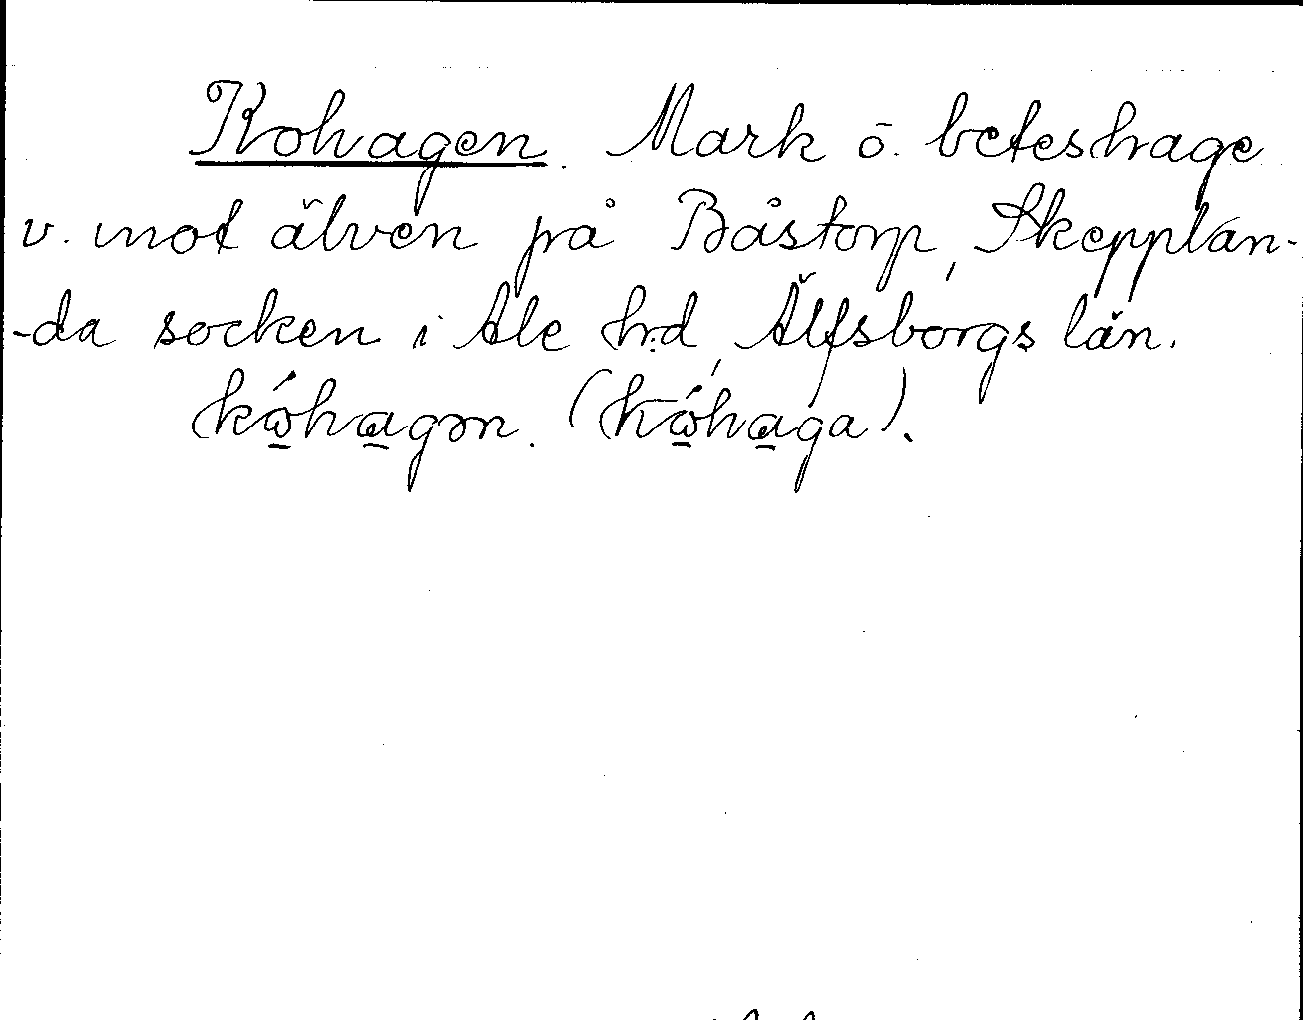 Kohagen. Mark ö. beteshage
v. mot älven på Båstorp, Skepplan-
-da socken i Ale h:d, Älfsborgs län.
kώ̲ha̲gən. (kώ̲ha̲ga).